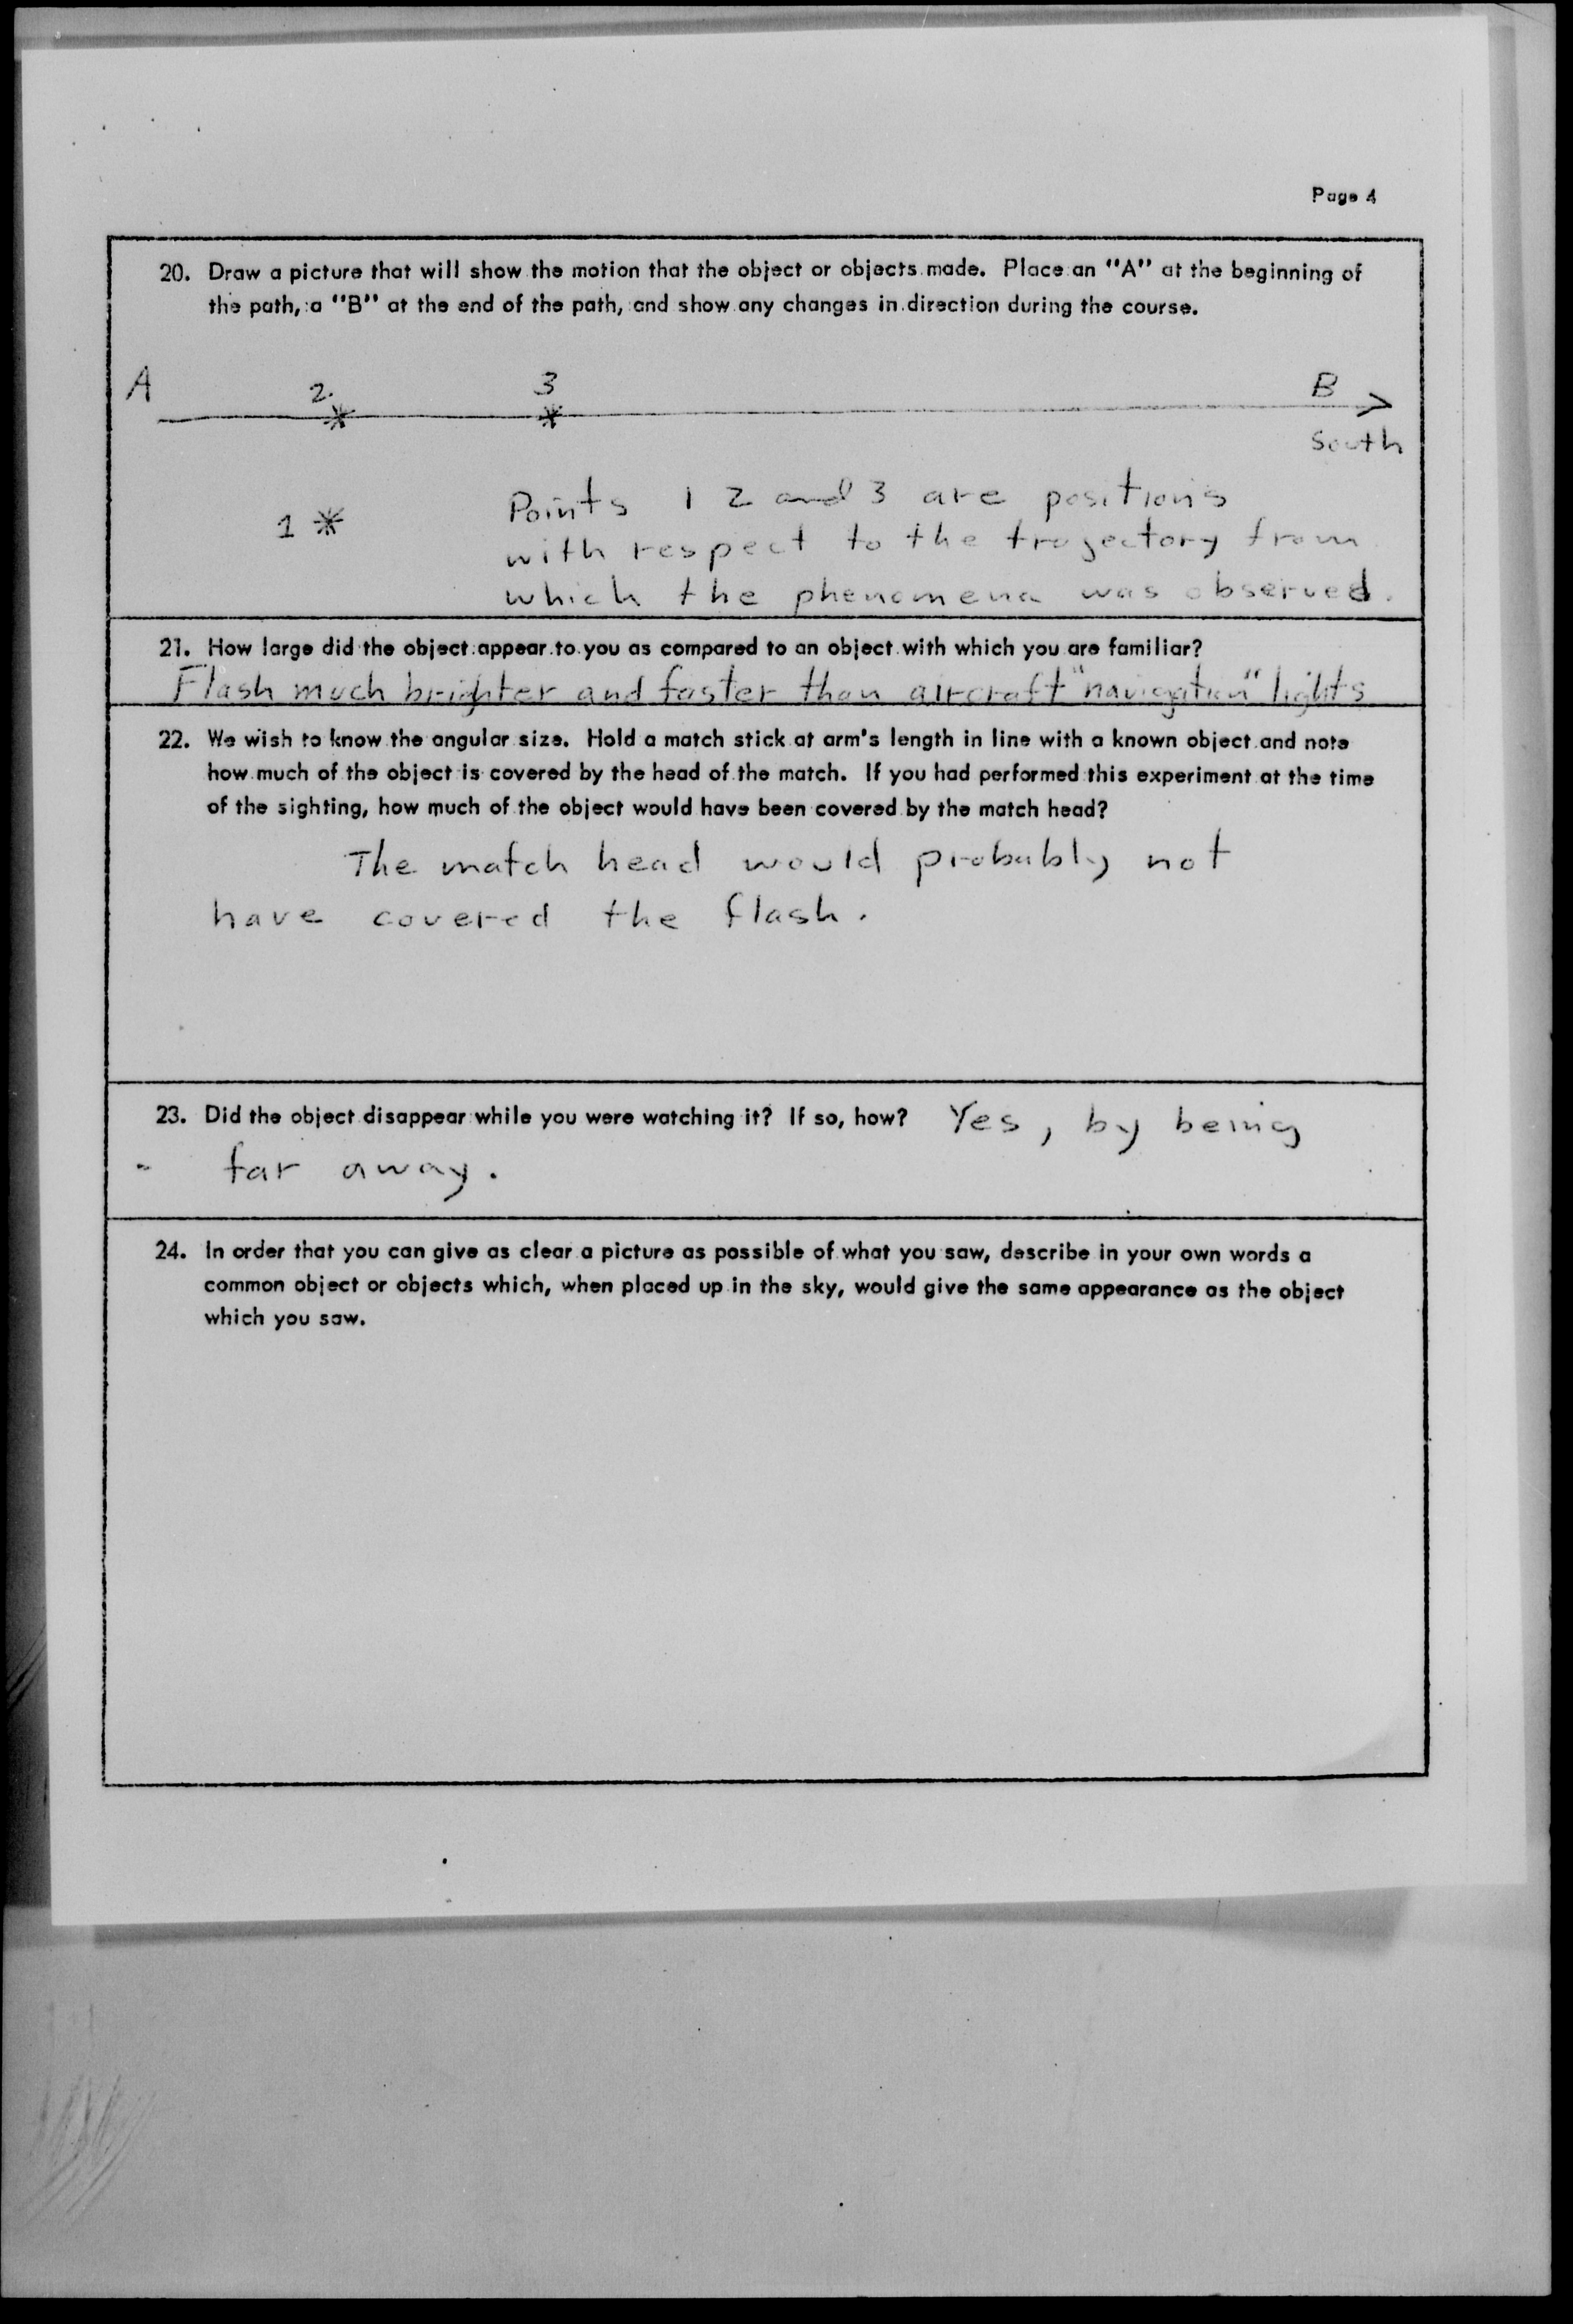 Page 4
20. Draw a picture that will show the motion that the object or objects made. Place an "A" at the beginning of
the path, a "B" at the end of the path, and show any changes in direction during the course.
A 2 3 B
South
1
Points 1 2 and 3 are positions
with respect to the trajectory from
which the phenomena was observed.
21. How large did the object appear to you as compared to an object with which you are familiar?
Flash much brighter and faster than aircraft "navigation" lights
22. We wish to know the angular size. Hold a match stick at arm's length in line with a known object and note
how much of the object is covered by the head of the match. If you had performed this experiment at the time
of the sighting, how much of the object would have been covered by the match head?
The match head would probably not
have covered the flash.
23. Did the object disappear while you were watching it? If so, how? Yes, by being
far away.
24. In order that you can give as clear a picture as possible of what you saw, describe in your own words a
common object or objects which, when placed up in the sky, would give the same appearance as the object
which you saw.